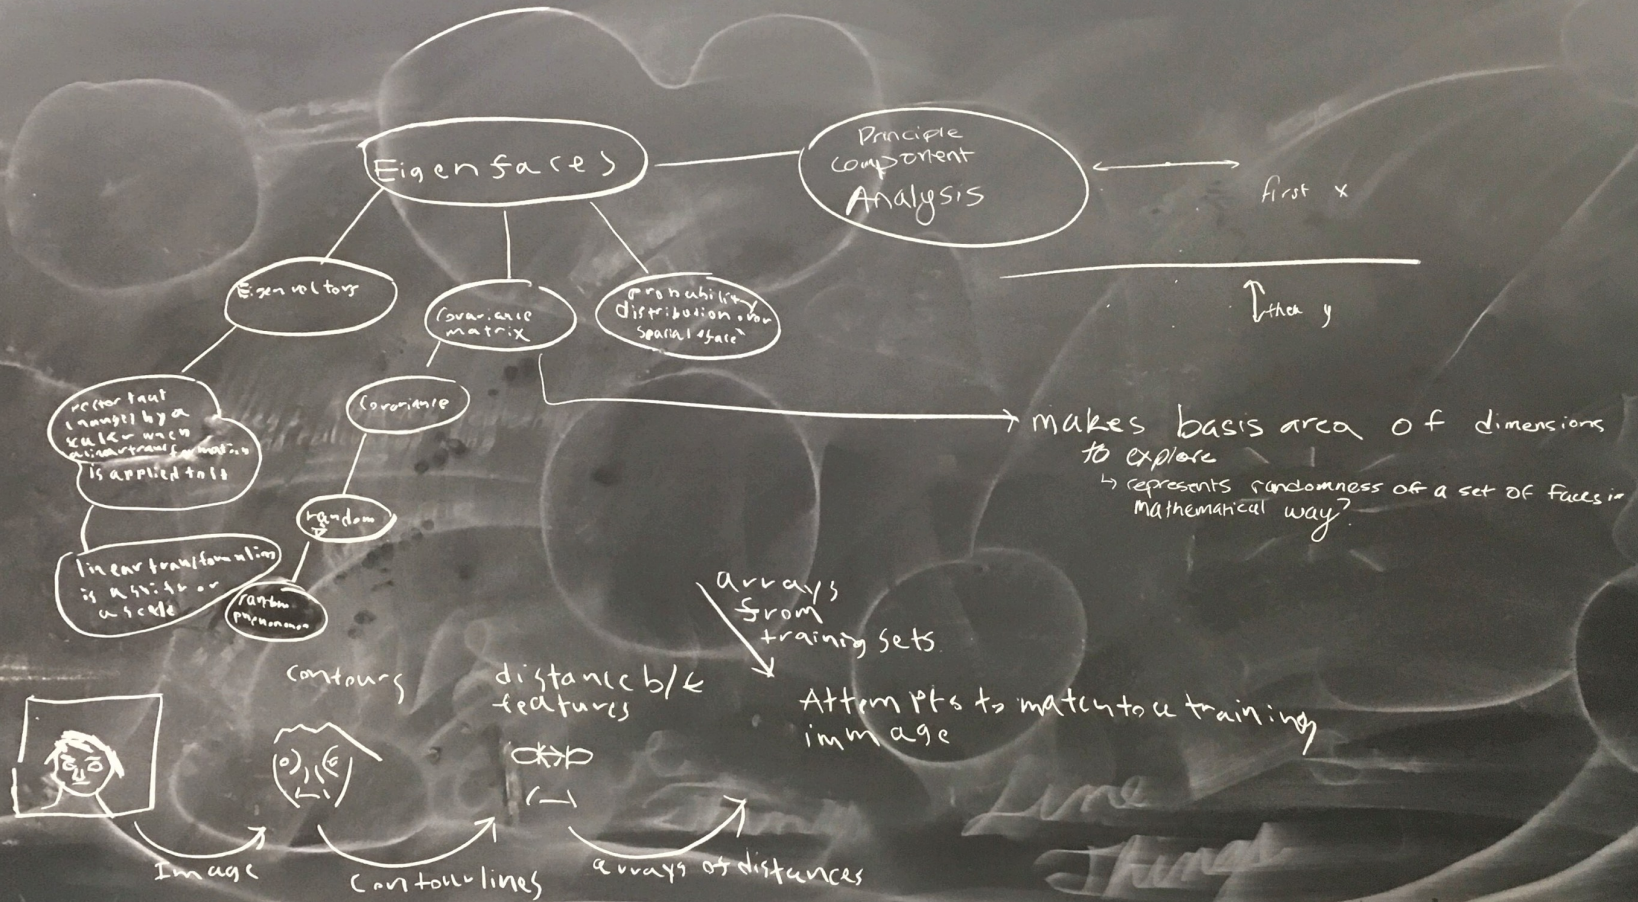 Eigenfaces
Principle
component
Analysis
first x
then y
Eigenvectors
Covariance
matrix
probability
distribution over
spatial "face"
vector that
changes by a
scalar when
a linear transformation
is applied to it
Covariance
random
linear transformation
is a shift or
a scale
random
phenomenon
makes basis area of dimensions
to explore
↳ represents randomness of a set of faces in
mathematical way?
arrays
from
training sets
contours
distance b/t
features
Attempts to match to a training
immage
Image
Contour lines
arrays of distances
Line
Things